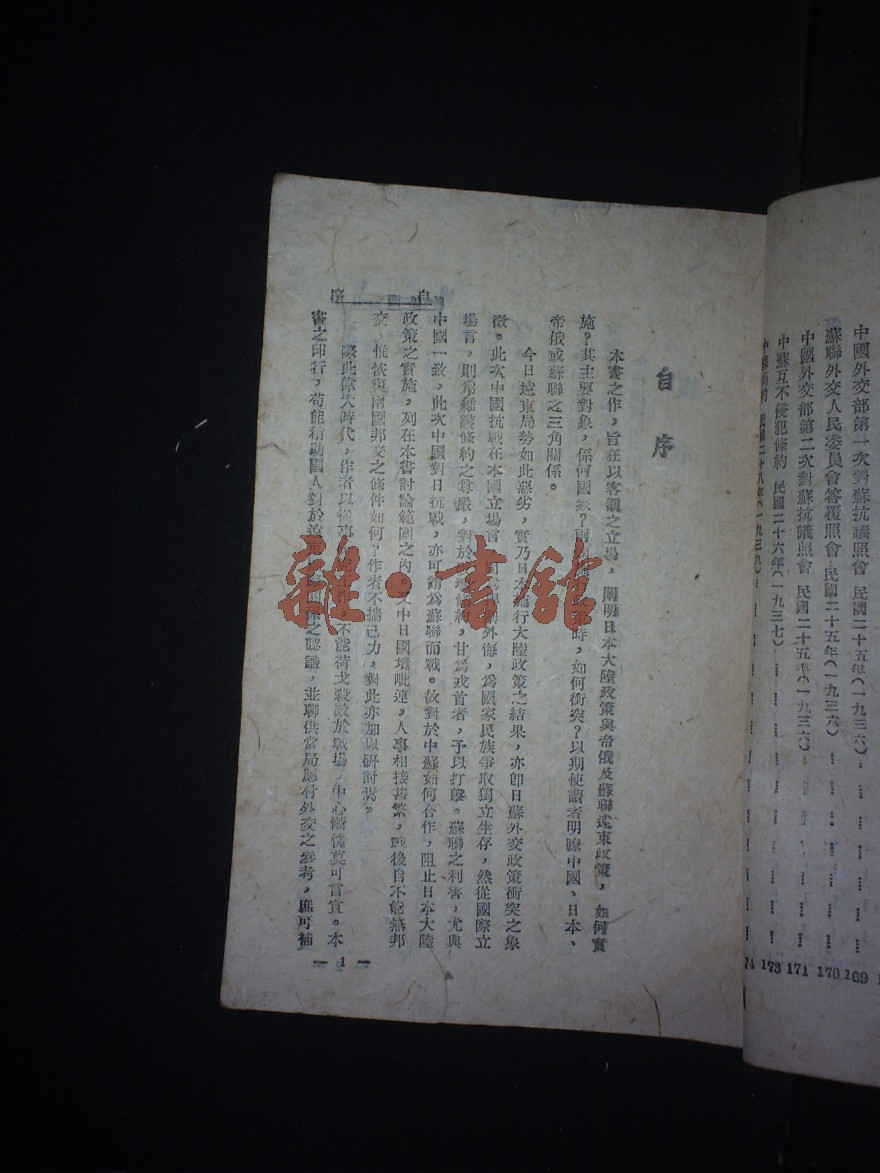 中國外交部第一次對蘇抗議照會 民國二十五年(一九三六)
169
蘇聯外交人民委員會答覆照會 民國二十五年(一九三六)
170
中國外交部第二次對蘇抗議照會 民國二十五年(一九三六)
171
中蘇互不侵犯條約 民國二十六年(一九三七)
173
民國二十八年(一九三九)
74
自序
本書之作,旨在以客觀之立場,闡明日本大陸政策與帝俄及蘇聯遠東政策,如何實
施?其主要對象,係何國家?兩 時,如何衝突?以期使讀者明瞭中國、日本、
帝俄或蘇聯之三角關係。
今日遠東局勢如此惡劣,實乃日本施行大陸政策之結果,亦即日蘇外交政策衝突之象
徵。此次中國抗戰在本國立場言 外侮,為國家民族爭取獨立生存,然從國際立
場言,則為維護條約之尊嚴,對於 甘為戎首者,予以打擊。蘇聯之利害,尤與
中國一致,此次中國對日抗戰,亦可謂為蘇聯而戰。故對於中蘇如何合作,阻止日本大陸
政策之實施,列在本書討論範圍之內 中日國壤毗連,人事相接甚繁,戰後自不能無邦
交,惟恢復兩國邦交之條件如何?作者不揣己力,對此亦加以研討焉。
際此偉大時代,作者以從事 不能荷戈殺敵於戰場,中心慚愧莫可言宣。本
書之印行,苟能稍助國人對於遠東 之認識,並聊供當局應付外交之參考,庶可補
自序
— 1 —
雜·書館